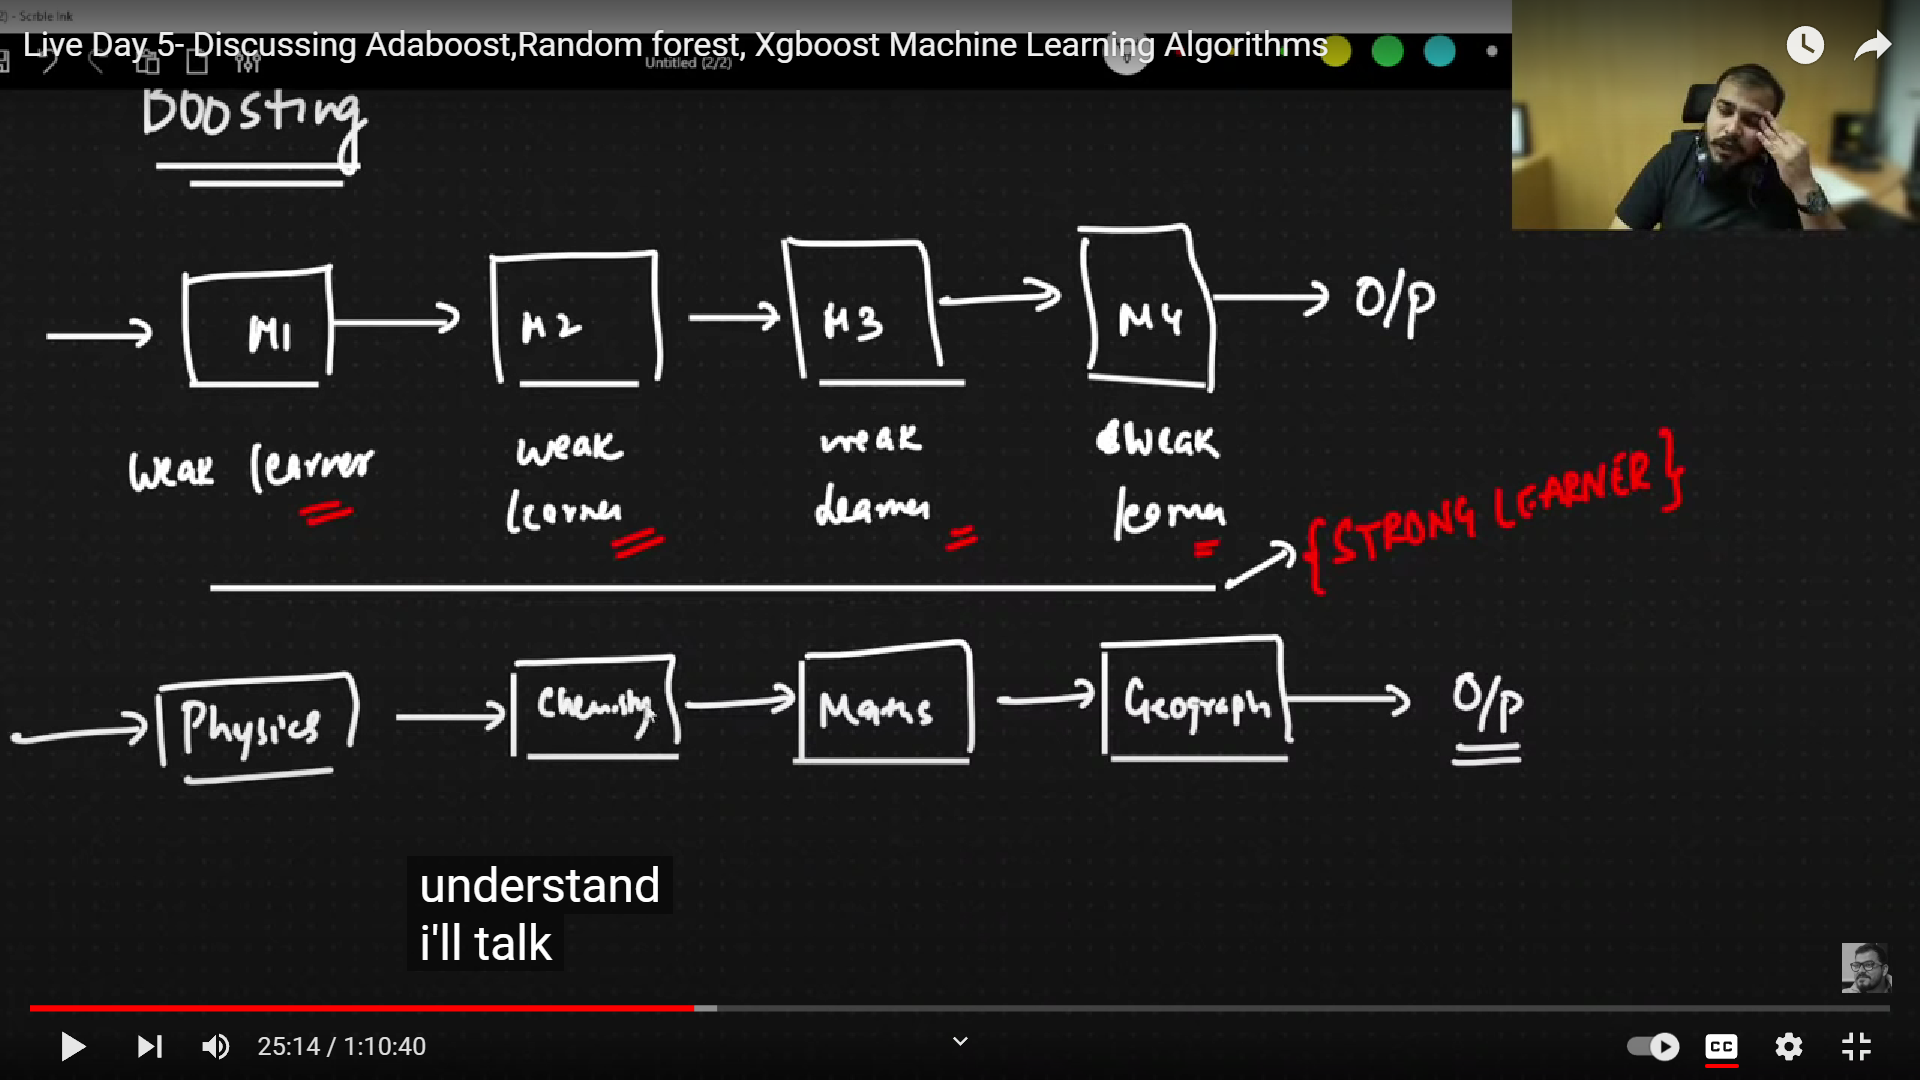 2) - Scrble Ink
Live Day 5- Discussing Adaboost,Random forest, Xgboost Machine Learning Algorithms
Untitled (2/2)
Boosting
M1
M2
M3
M4
O/P
weak learner
weak
learner
weak
learner
weak
learner
{STRONG LEARNER}
Physics
Chemistry
Maths
Geograph
O/p
understand
i'll talk
25:14 / 1:10:40
CC